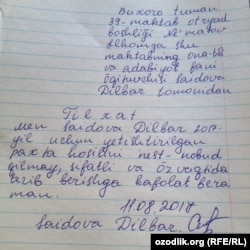 Buxoro tuman
39-maktab otryad
boshlig'i Ne'matov
Ilhomga shu
maktabning ona tili
va adabiyot fani
o'qituvchisi Saidova
Dilbar tomonidan
Tilxat
Men Saidova Dilbar 2017-
yil uchun yetishtirilgan
paxta hosilini nest-nobud
qilmay, sifatli va o'z vaqtida
terib berishga kafolat bera-
man.
11.08.2017
Saidova Dilbar
ozodlik.org (RFE/RL)